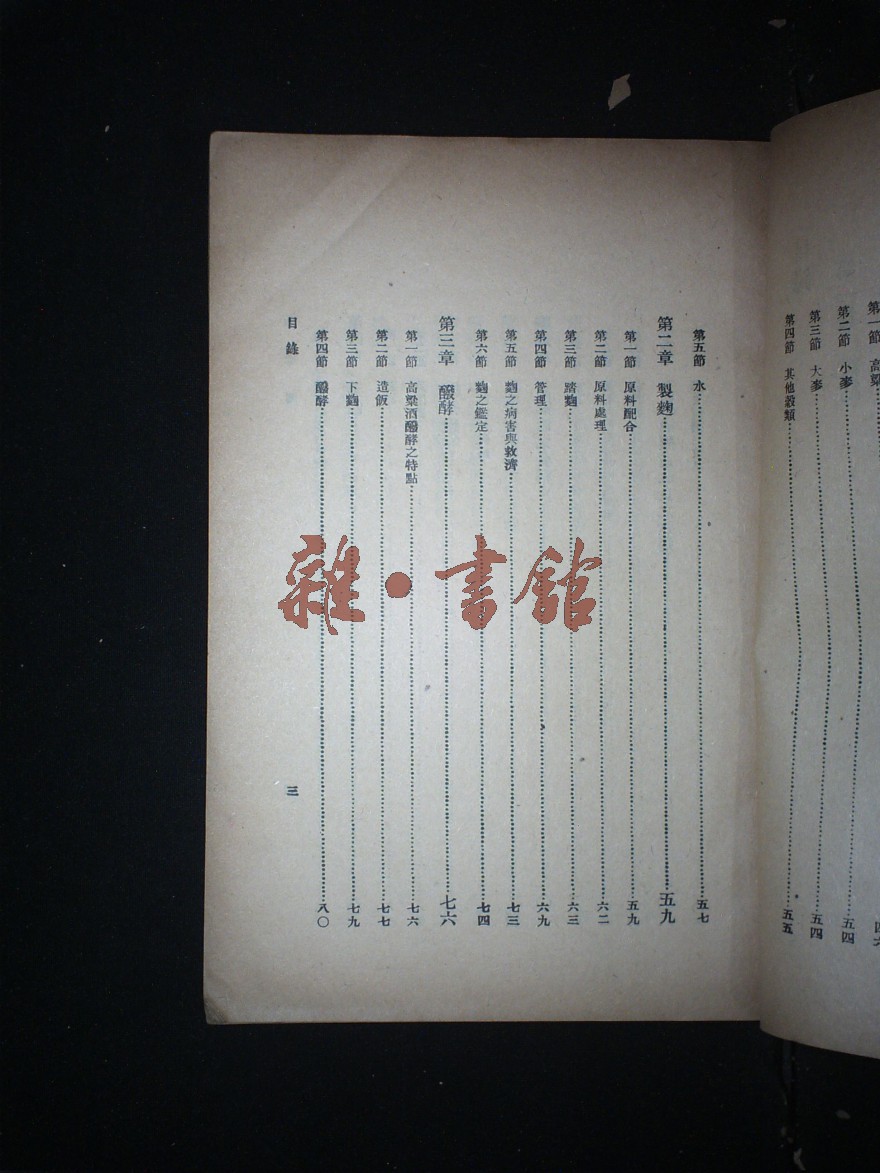 第一節　高粱
第二節　小麥……五四
第三節　大麥……五四
第四節　其他穀類……五五
第五節　水……五七
第二章　製麴……五九
第一節　原料配合……五九
第二節　原料處理……六二
第三節　踏麴……六三
第四節　管理……六九
第五節　麴之病害與救濟……七三
第六節　麴之鑑定……七四
第三章　醱酵……七六
第一節　高粱酒醱酵之特點……七六
第二節　造飯……七七
第三節　下麴……七九
第四節　醱酵……八〇
目錄
三
雜・書館